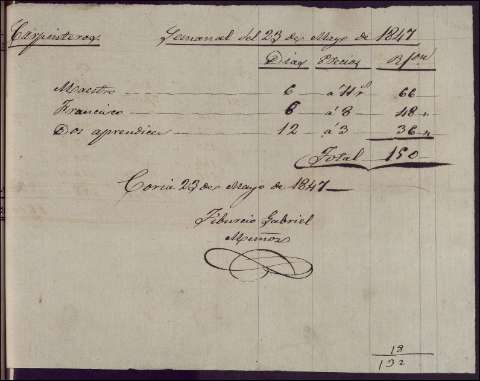 Carpinteros Semanal del 23 de Mayo de 1847
Dias Precios R.s on
Maestro 6 a 11 r.s 66
Francisco 6 á 8 48 "
Dos aprendices 12 á 3 36 "
Total 150
Coria 23 de Mayo de 1847
Tiburcio Gabriel
Muñoz
19
132